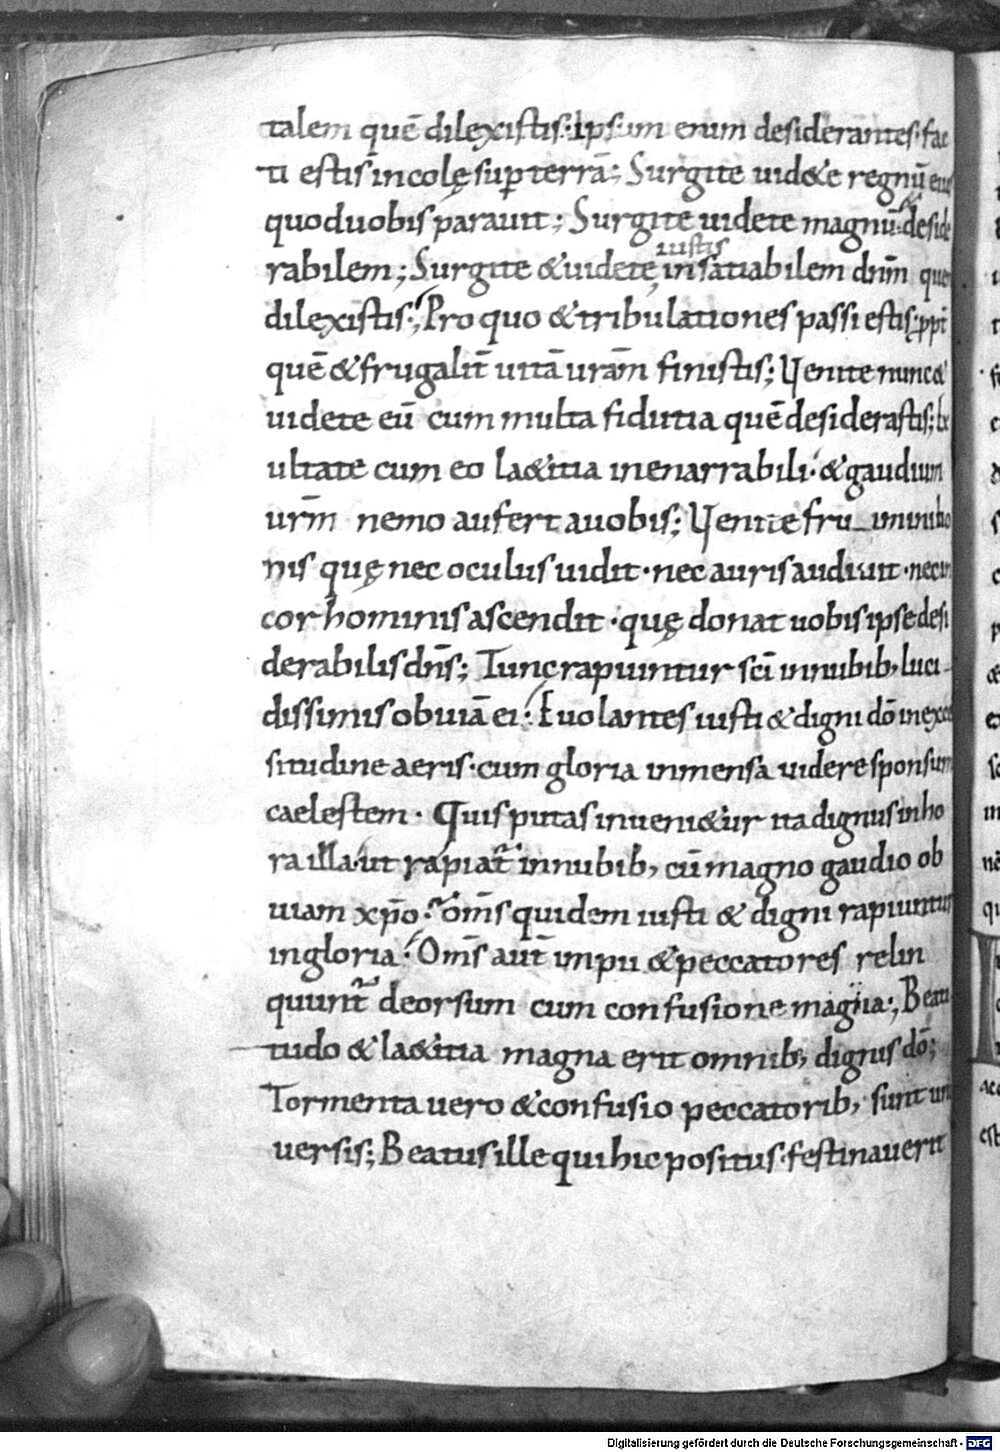 talem quē dilexistis· ipsum enim desiderantes· fac
ti estis incolę sup terrā; Surgite uidete regnū eius
quod uobis parauit; Surgite uidete magnū· & deside
rabilem; Surgite & uidetę iustis insatiabilem dnm̄ quē
dilexistis; Pro quo & tribulationes passi estis; ppt
quē & frugalit̄ uitā uram̄ finistis; Uenite nunc &
uidete eū cum multa fidutia quē desiderastis; Ex
ultate cum eo laetitia inenarrabili· & gaudium
urm̄ nemo aufert a uobis; Uenite fru imini bo
nis quę nec oculus uidit· nec auris audiuit· nec in
cor hominis ascendit· quę donat uobis ipse desi
derabilis dns̄; Tunc rapiuntur sci in nubib; luci
dissimis obuiā ei; Euolantes iusti & digni dō in exces
situdine aeris· cum gloria inmensa uidere sponsum
caelestem· Quis putas inuenietur ita dignus in ho
ra illa· ut rapiat̄ in nubib; cū magno gaudio ob
uiam xp̄o· oms̄ quidem iusti & digni rapiuntur
in gloria· Oms̄ aut̄ impii & peccatores relin
quunt̄ deorsum cum confusione magna; Beati
tudo & laetitia magna erit omnib; dignis dō;
Tormenta uero & confusio peccatorib; sunt uni
uersis; Beatus ille qui hic positus· festinauerit
Digitalisierung gefördert durch die Deutsche Forschungsgemeinschaft - DFG